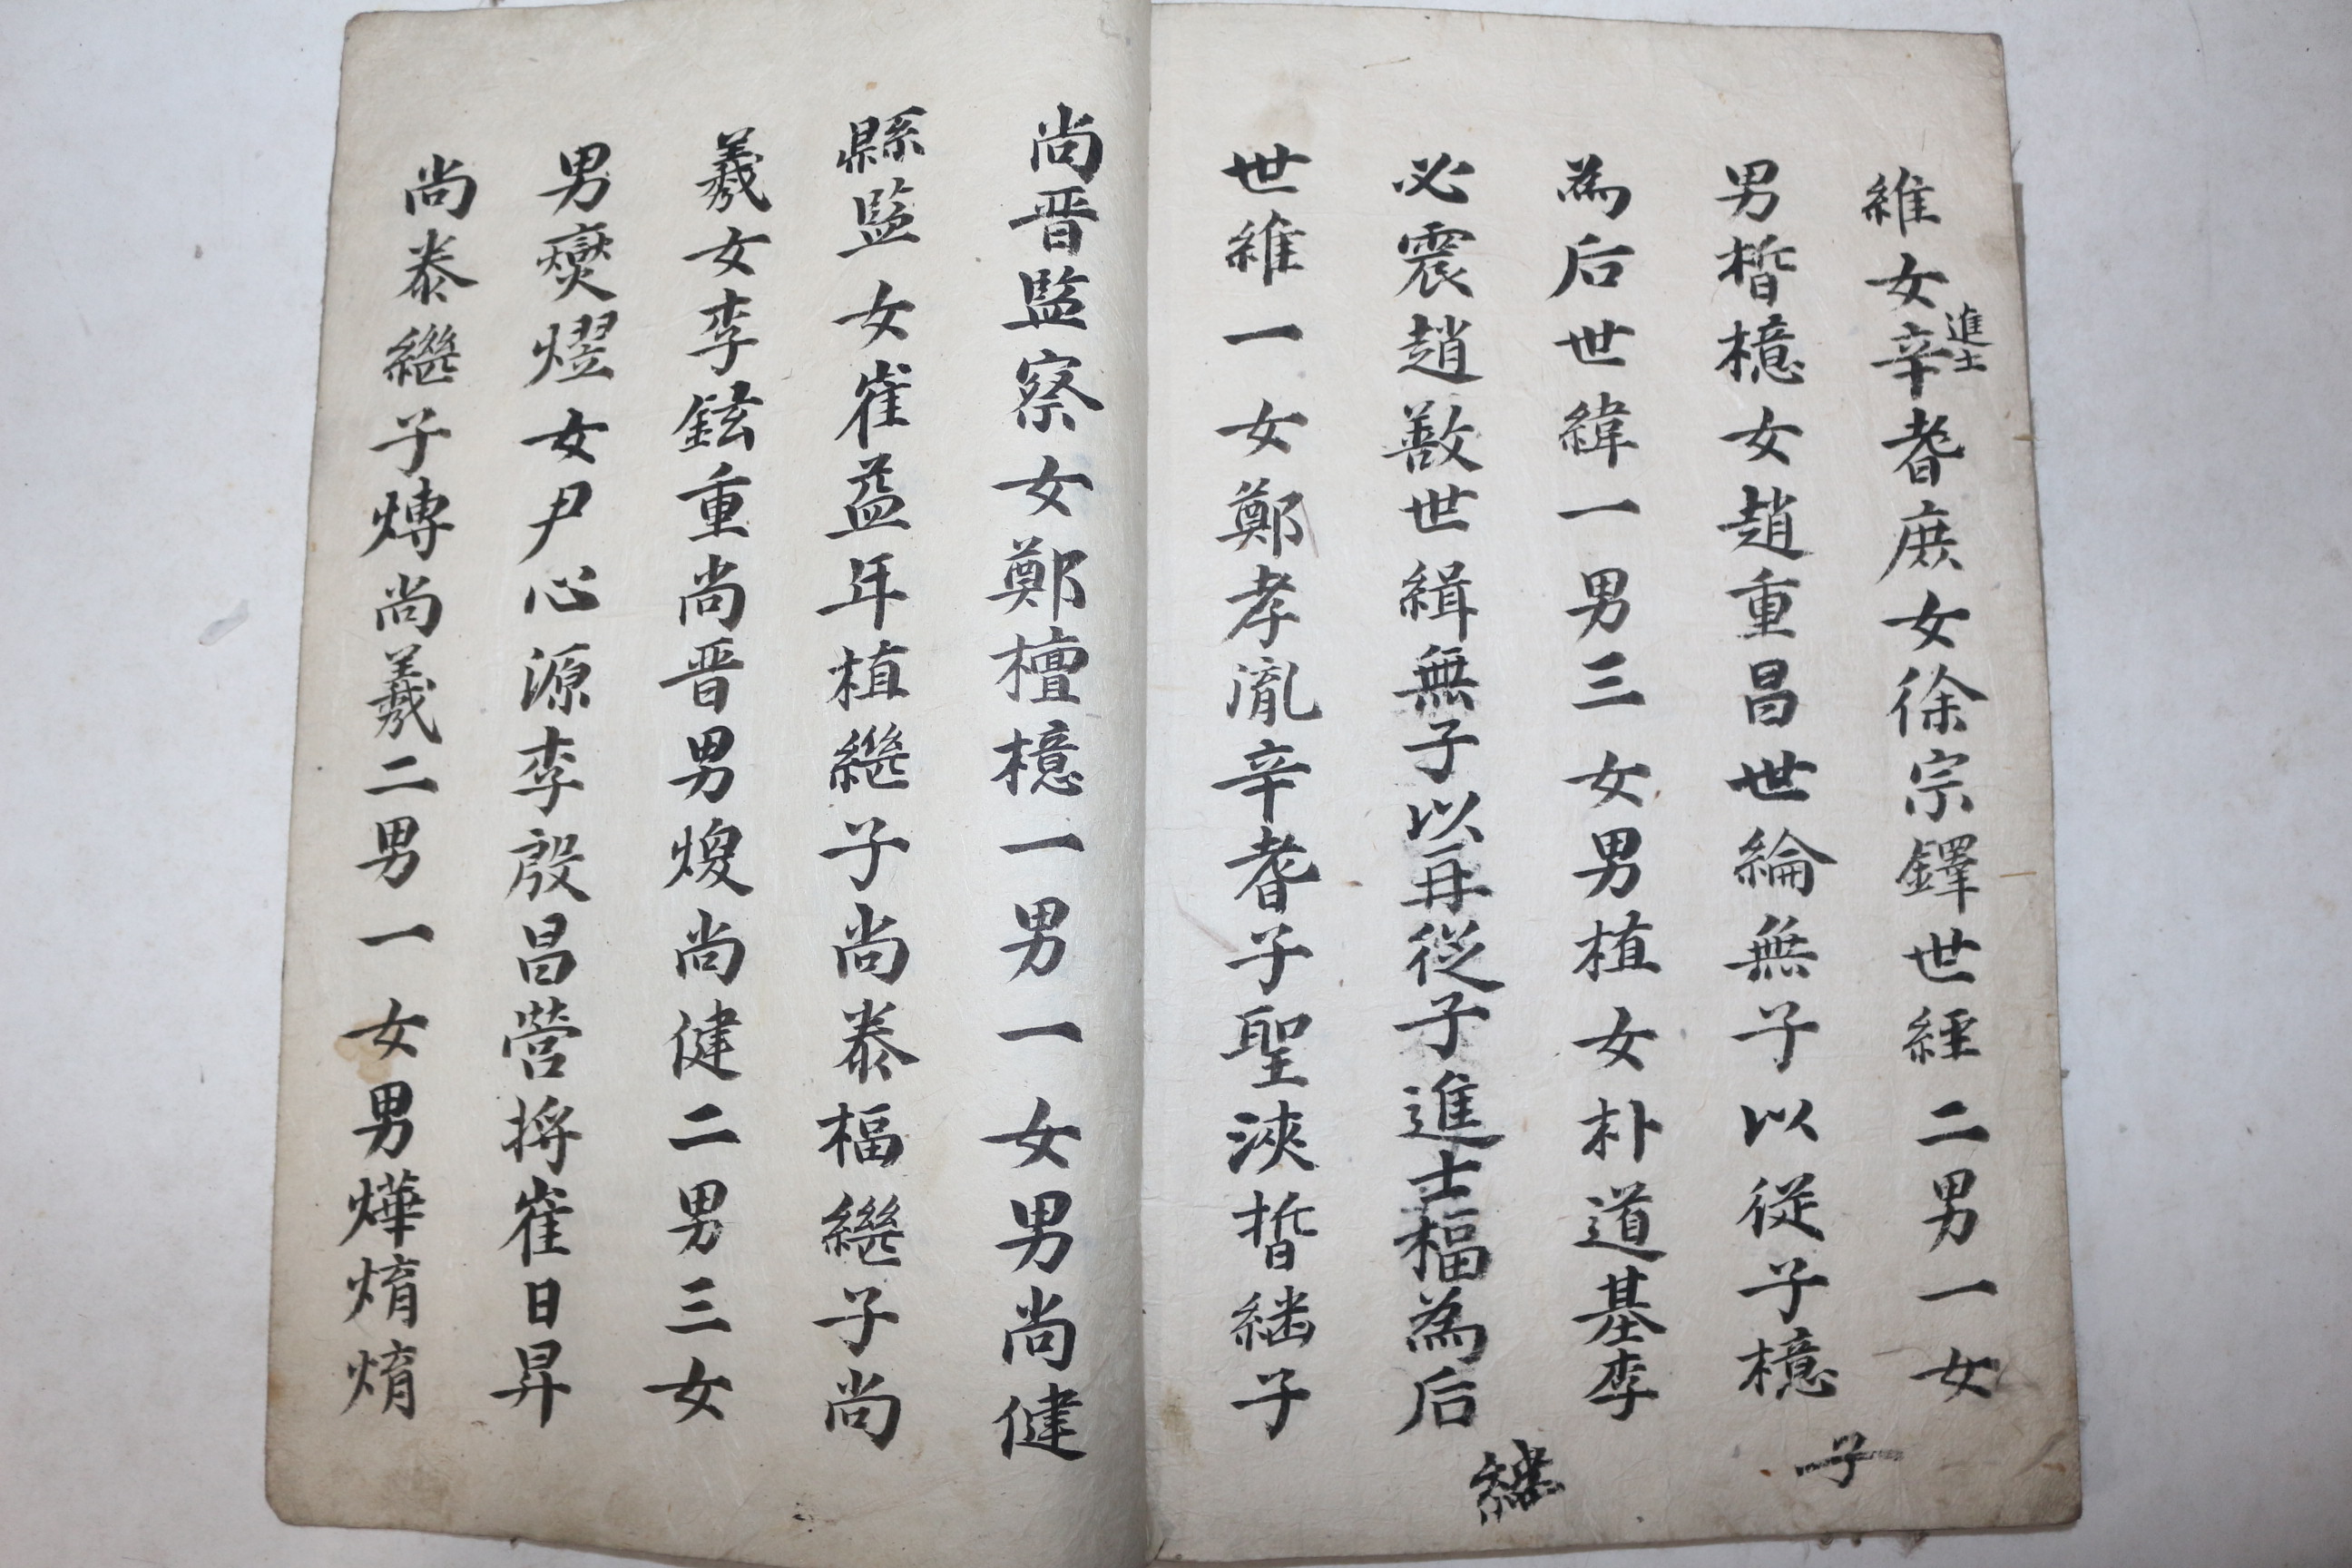 維女辛進士耆庶女徐宗鐸世經二男一女
男晳檍女趙重昌世綸無子以從子檍
為后世緯一男三女男植女朴道基李
必震趙敾世緝無子以再從子進士楅為后
世維一女鄭孝胤辛耆子聖浹晳継子
子
繼
尚晋監察女鄭檀檍一男一女男尚健
縣監女崔益年植繼子尚泰楅繼子尚
羲女李鉉重尚晋男焌尚健二男三女
男㷟熤女尹心源李殷昌營將崔日昇
尚泰繼子煿尚羲二男一女男燁焴焴